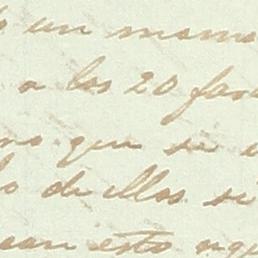 un mome
a los 20 fara
no que se
de ellos si
esto